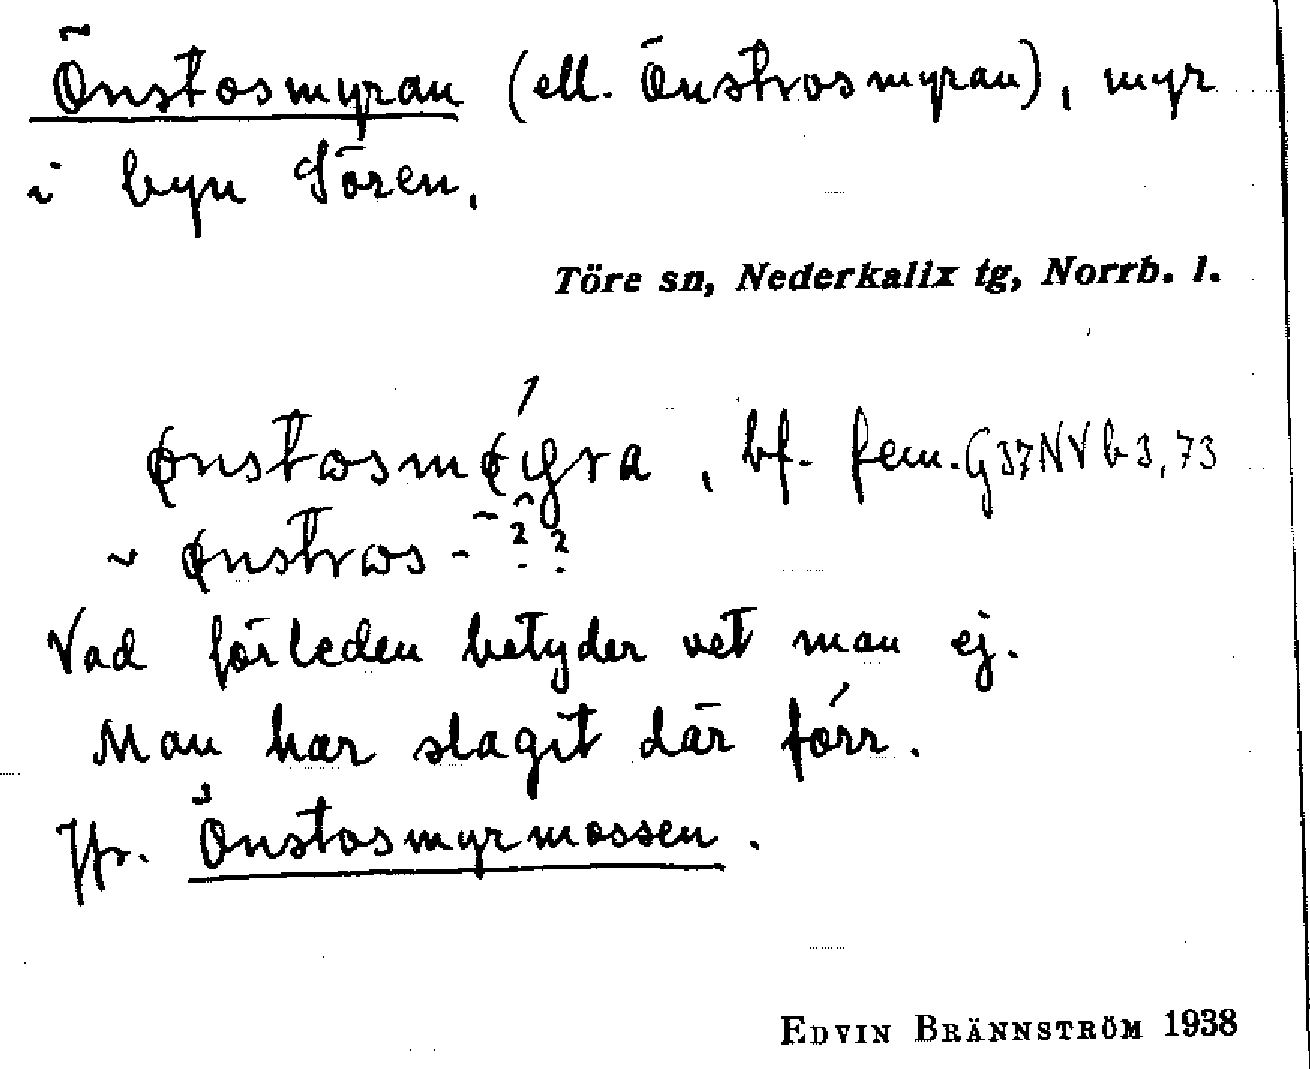 Önstosmyran (ell. Önstrosmyran), myr
i byn Sören.
Töre sn, Nederkalix tg, Norrb. l.
bf. fem. G37NVb3,73
Vad förleden betyder vet man ej.
Man har slagit där förr.
Jfr. Önstosmyrmossen.
EDVIN BRÄNNSTRÖM 1938